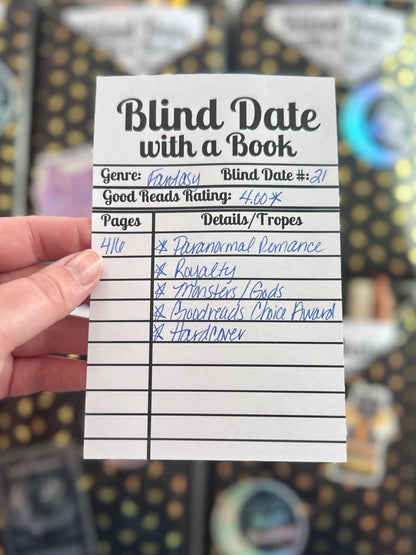 Blind Date
with a Book
Genre: Fantasy Blind Date #: 21
Good Reads Rating: 4.00☆
Pages Details/Tropes
416 ☆ Paranormal Romance
☆ Royalty
☆ Monsters/Gods
☆ Goodreads Choice Award
☆ Hardcover